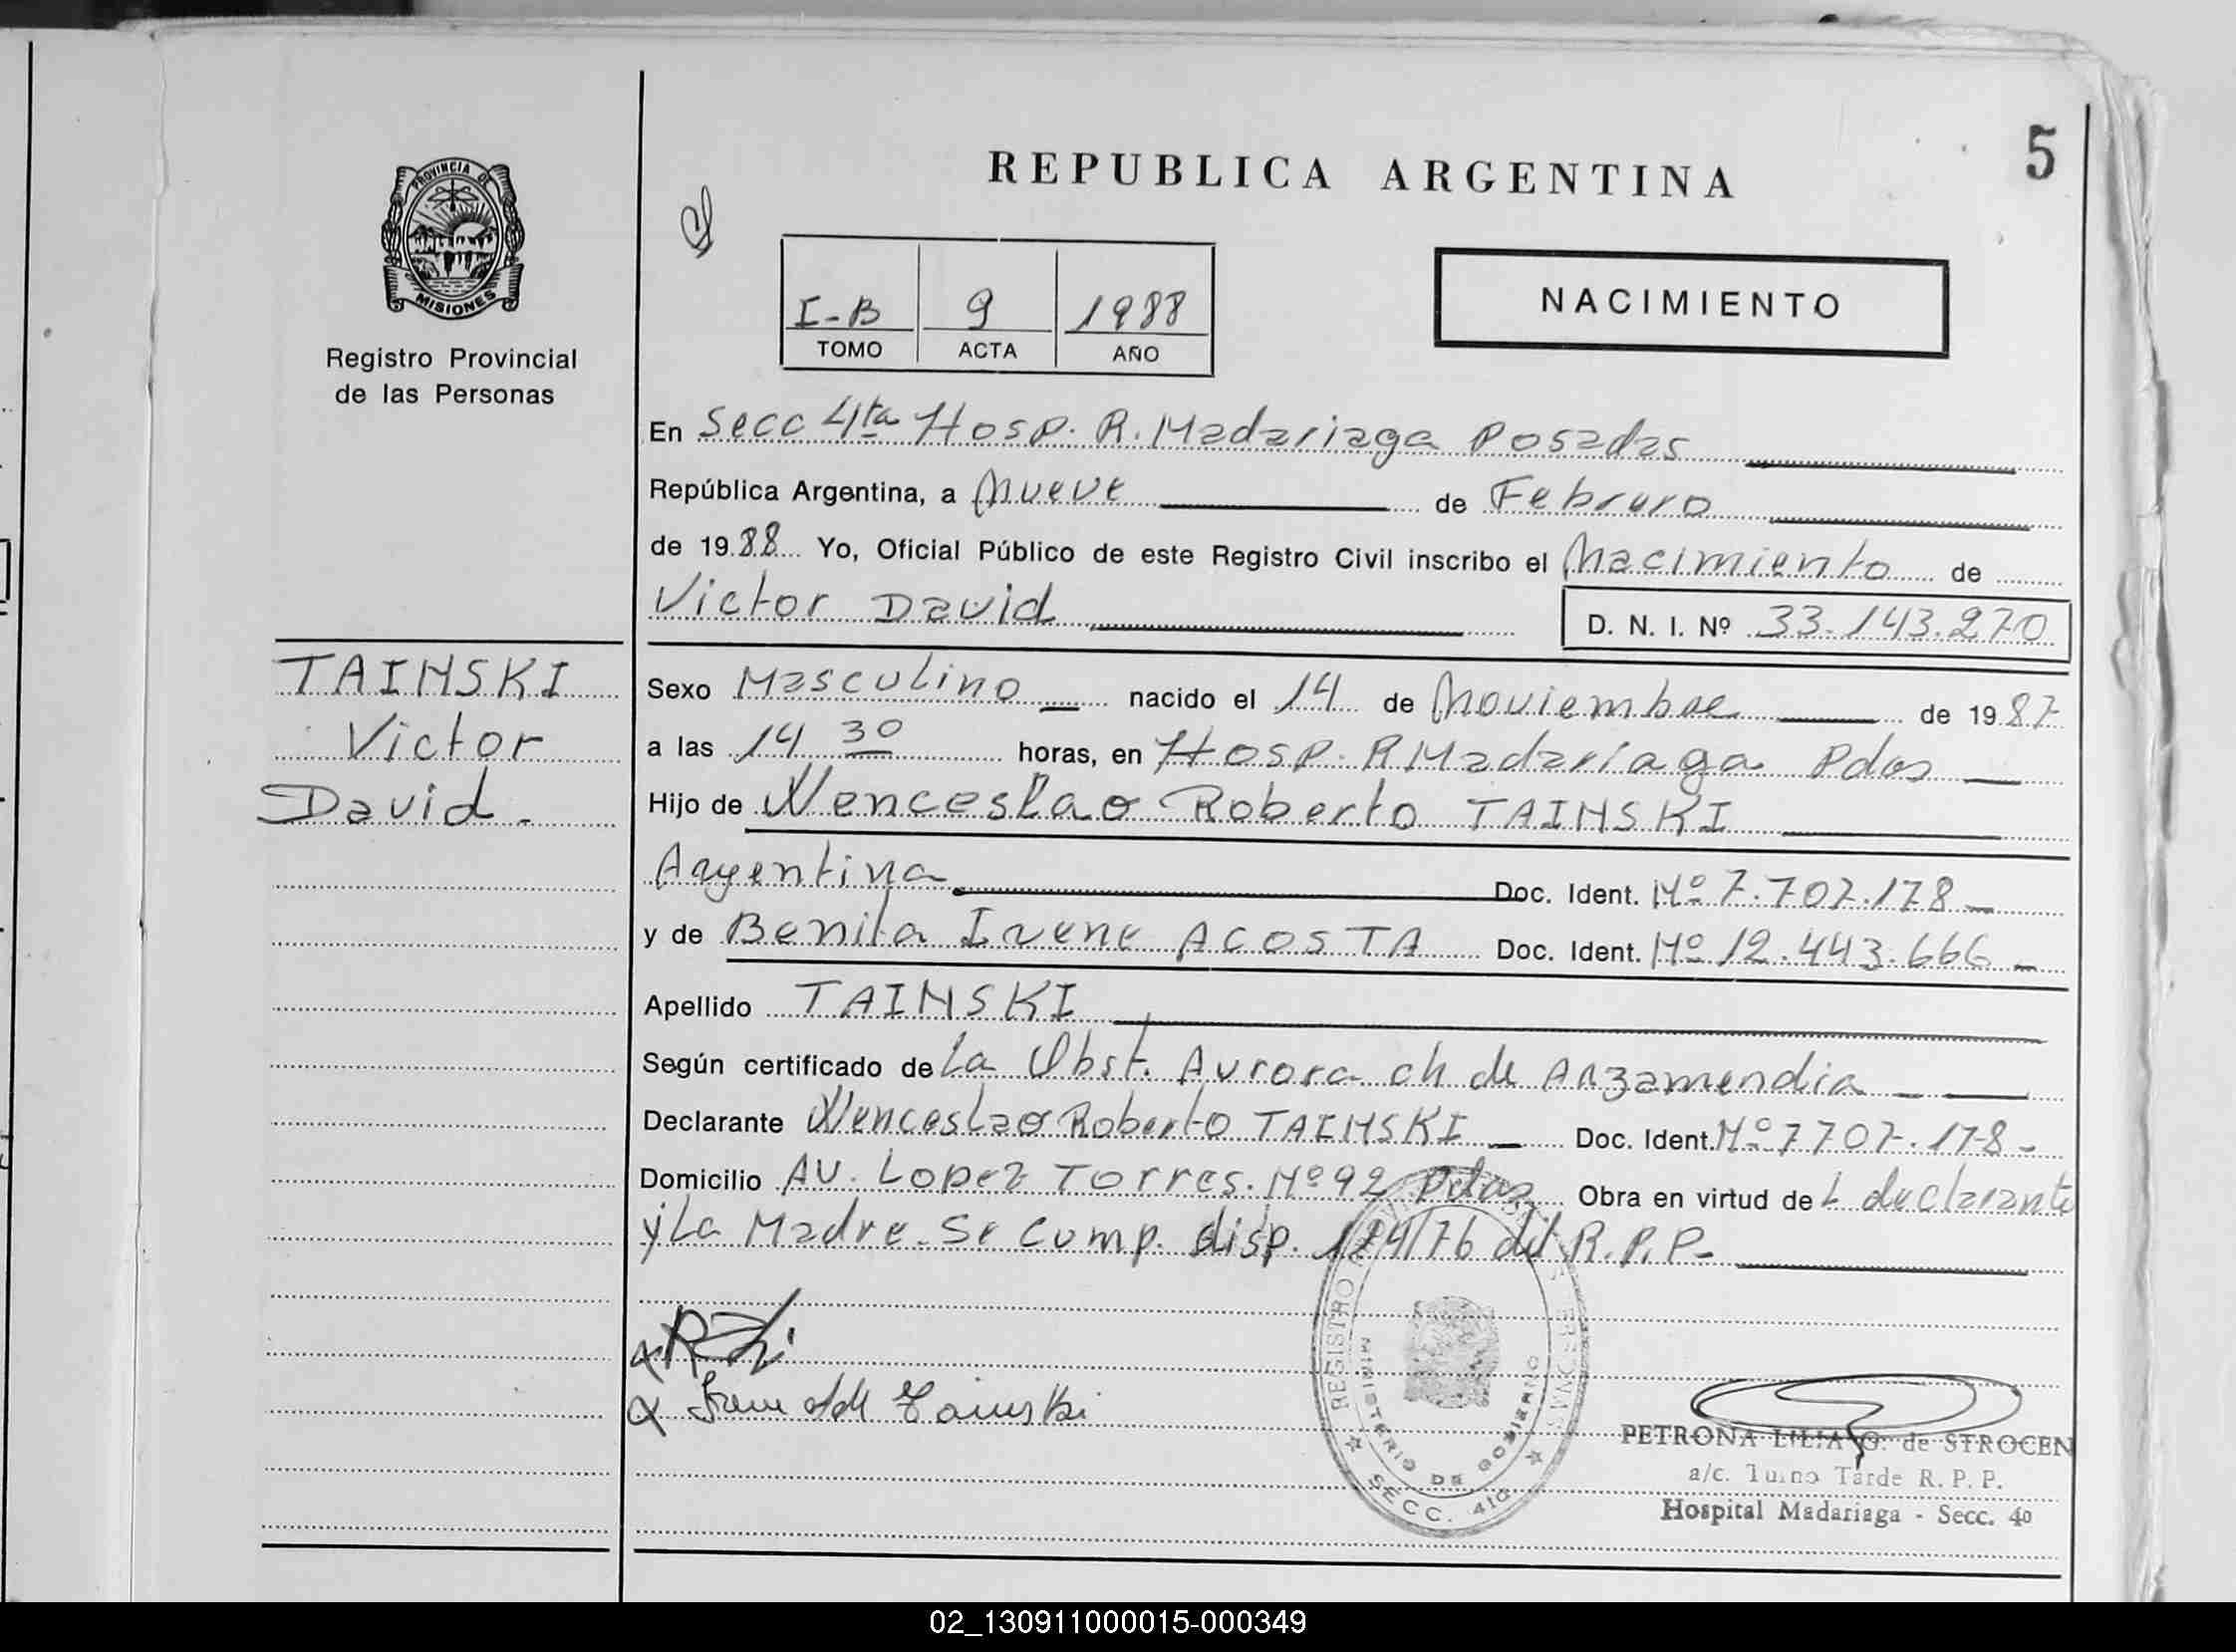 5
REPUBLICA ARGENTINA
PROVINCIA DE
MISIONES
Registro Provincial
de las Personas
I-B 9 1988
TOMO ACTA AÑO
NACIMIENTO
En Secc 4ta Hosp. R. Madariaga Posadas
República Argentina, a Nueve de Febrero
de 1988 Yo, Oficial Público de este Registro Civil inscribo el Nacimiento de
Victor David
D. N. I. Nº 33.143.270
TAINSKI
Victor
David.
Sexo Masculino nacido el 14 de Noviembre de 1987
a las 14 30 horas, en Hosp. R Madariaga Pdas
Hijo de Wenceslao Roberto TAINSKI
Argentina Doc. Ident. Nº 7.707.178
y de Benita Irene ACOSTA Doc. Ident. Nº 12.443.666
Apellido TAINSKI
Según certificado de La Obst. Aurora ch de Anzamendia
Declarante Wenceslao Roberto TAINSKI Doc. Ident. Nº 7707.178
Domicilio AV. Lopez Torres. Nº 92 Pdas Obra en virtud de L declarante
y La Madre. Se Cump. disp. 124/76 del R.P.P.
REGISTRO
MINISTERIO DE GOBIERNO
SECC. 4ta
Tainski
PETRONA LILIA G. de STROCEN
a/c. Turno Tarde R. P. P.
Hospital Madariaga - Secc. 4a
02_130911000015-000349